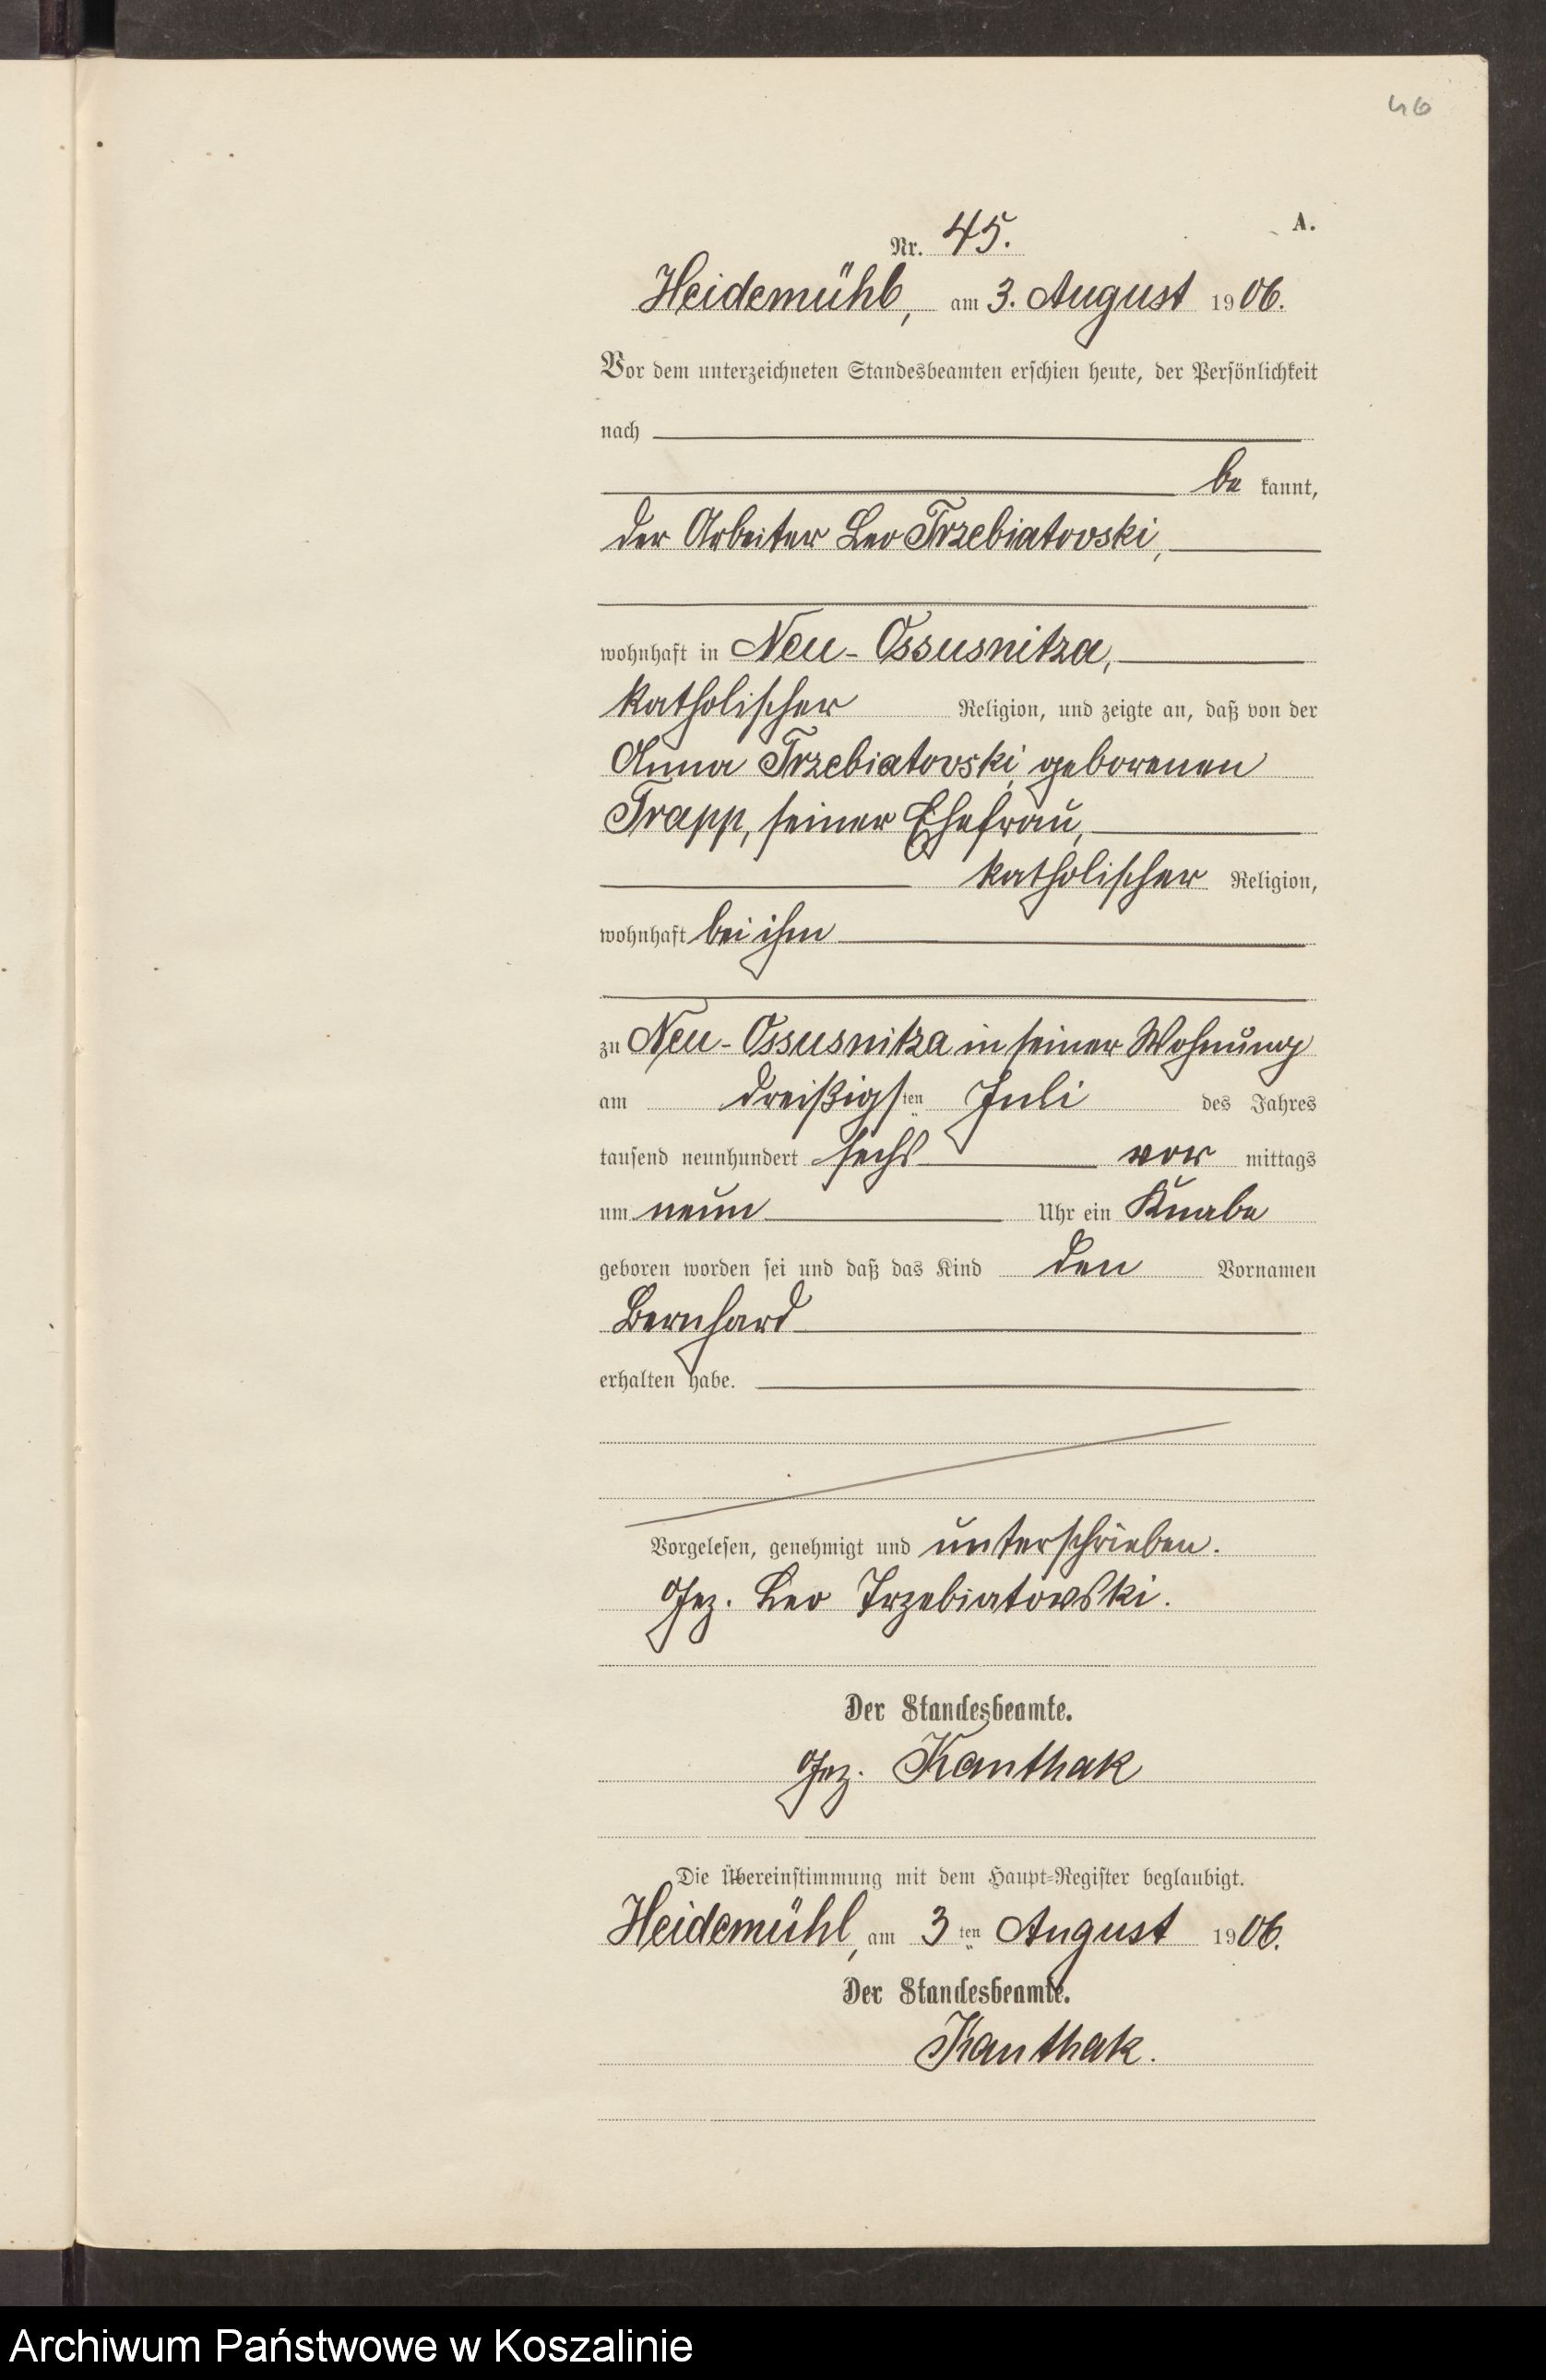 46
A.
Nr. 45.
Heidemühl, am 3. August 1906.
Vor dem unterzeichneten Standesbeamten erschien heute, der Persönlichkeit
nach
be kannt,
der Arbeiter Leo Trzebiatovski,
wohnhaft in Neu-Ossusnitza,
katholischer Religion, und zeigte an, daß von der
Anna Trzebiatovski, geborenen
Trapp, seiner Ehefrau,
katholischer Religion,
wohnhaft bei ihm
zu Neu-Ossusnitza in seiner Wohnung
am dreißigsten Juli des Jahres
tausend neunhundert sechs vor mittags
um neun Uhr ein Knabe
geboren worden sei und daß das Kind den Vornamen
Bernhard
erhalten habe.
Vorgelesen, genehmigt und unterschrieben.
Gez. Leo Trzebiatowski.
Der Standesbeamte.
Gez. Kanthak
Die Übereinstimmung mit dem Haupt-Register beglaubigt.
Heidemühl, am 3ten August 1906.
Der Standesbeamte.
Kanthak.
Archiwum Państwowe w Koszalinie